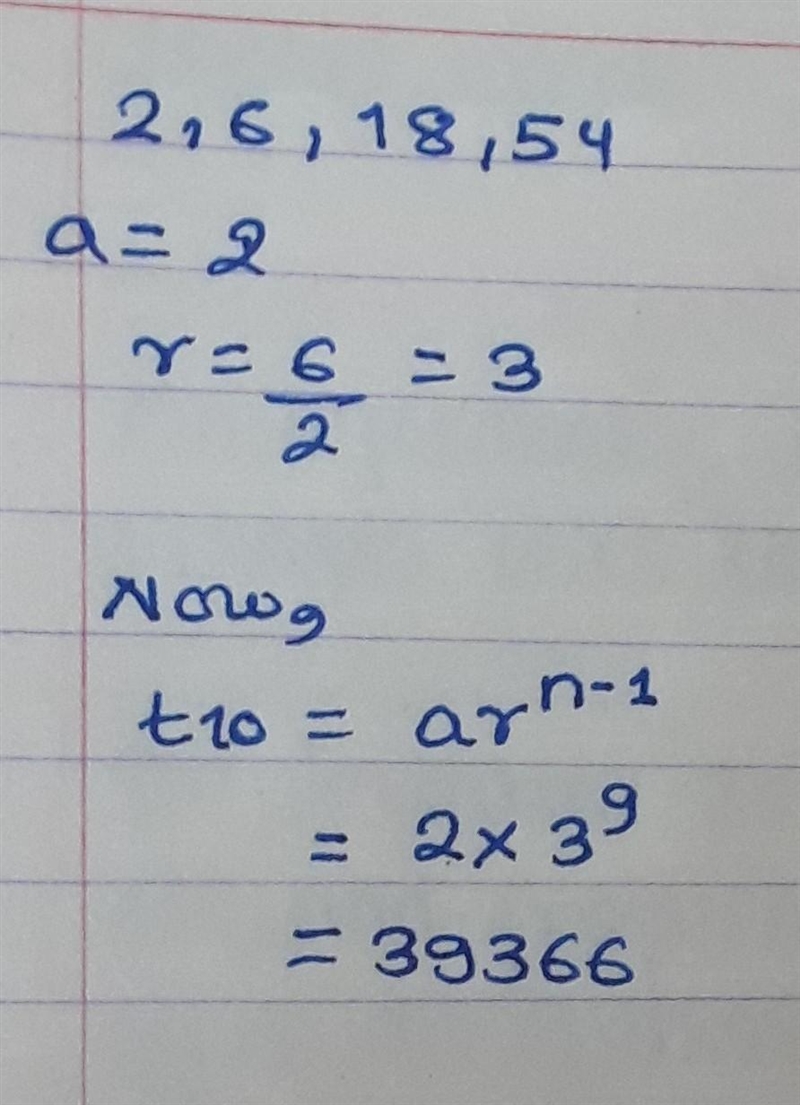 2, 6, 18, 54
a = 2
r = 6/2 = 3
Now,
t10 = ar^n-1
= 2 × 3^9
= 39366